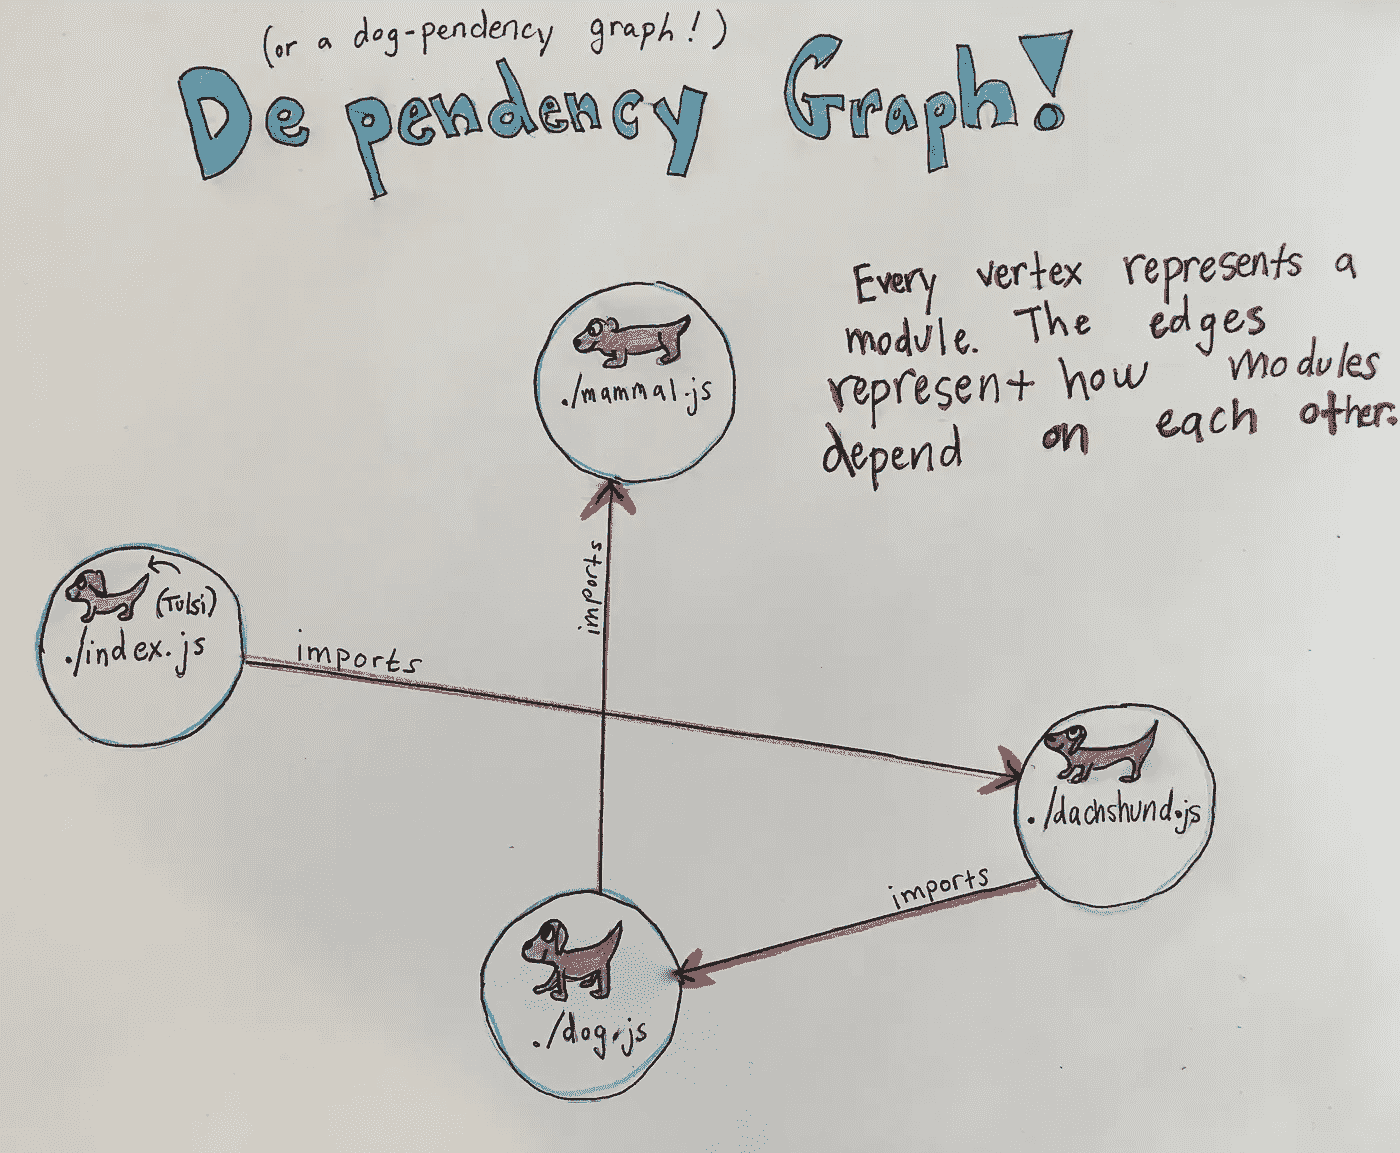 (or a dog-pendency graph!)
Dependency Graph!
Every vertex represents a
module. The edges
represent how modules
depend on each other.
./mammal.js
imports
(Tulsi)
./index.js
imports
./dachshund.js
imports
./dog.js